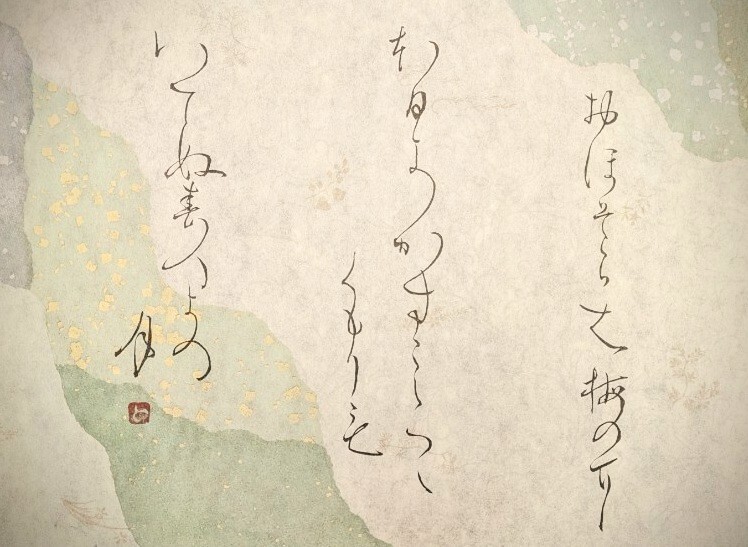 おほそらは梅のに
ほひにかすみつゝ
くもりも
はてぬ春のよの
月